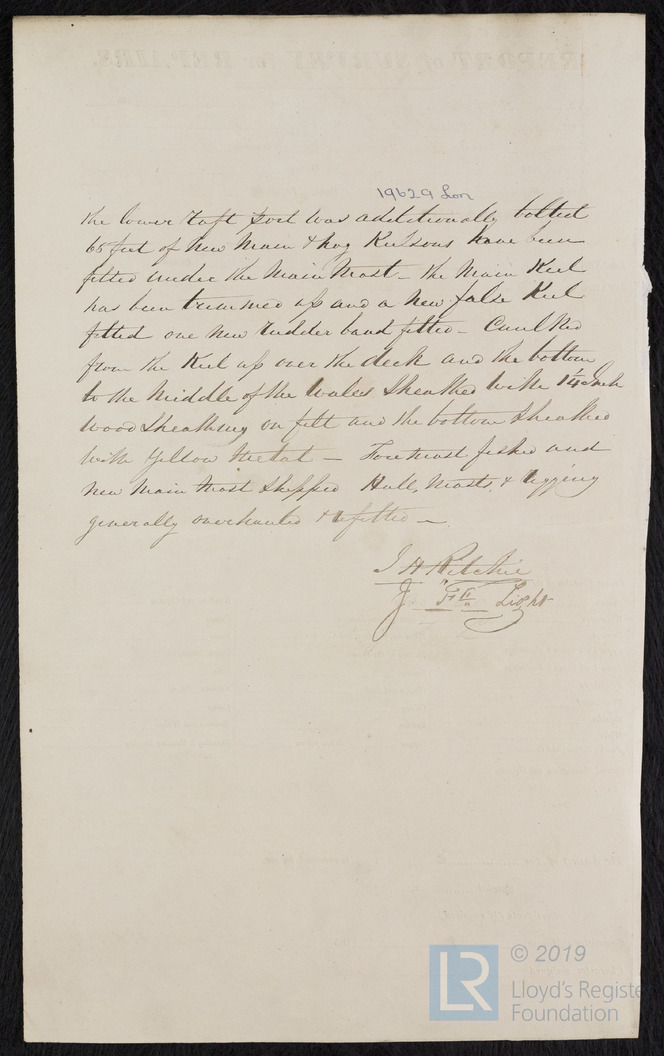 19629 Lon
the lower was additionally bolted
65 feet of New Main & hog Keelsons have been
fitted under the Main Mast - the Main Keel
has been trimmed up and a New false Keel
fitted one new rudder band fitted - Caulked
from the Keel up over the deck and the bottom
to the Middle of the Wales Sheathed with 1 1/4 Inch
Wood Sheathing on felt and the bottom Sheathed
with Yellow Metal - Foremast fished and
new Main Mast Shipped Hull, Masts, & rigging
generally overhauled & refitted -
J H Ritchie
J " " Light
REPORT of SURVEY for REPAIRS.
LR
© 2019
Lloyd's Registe
Foundation